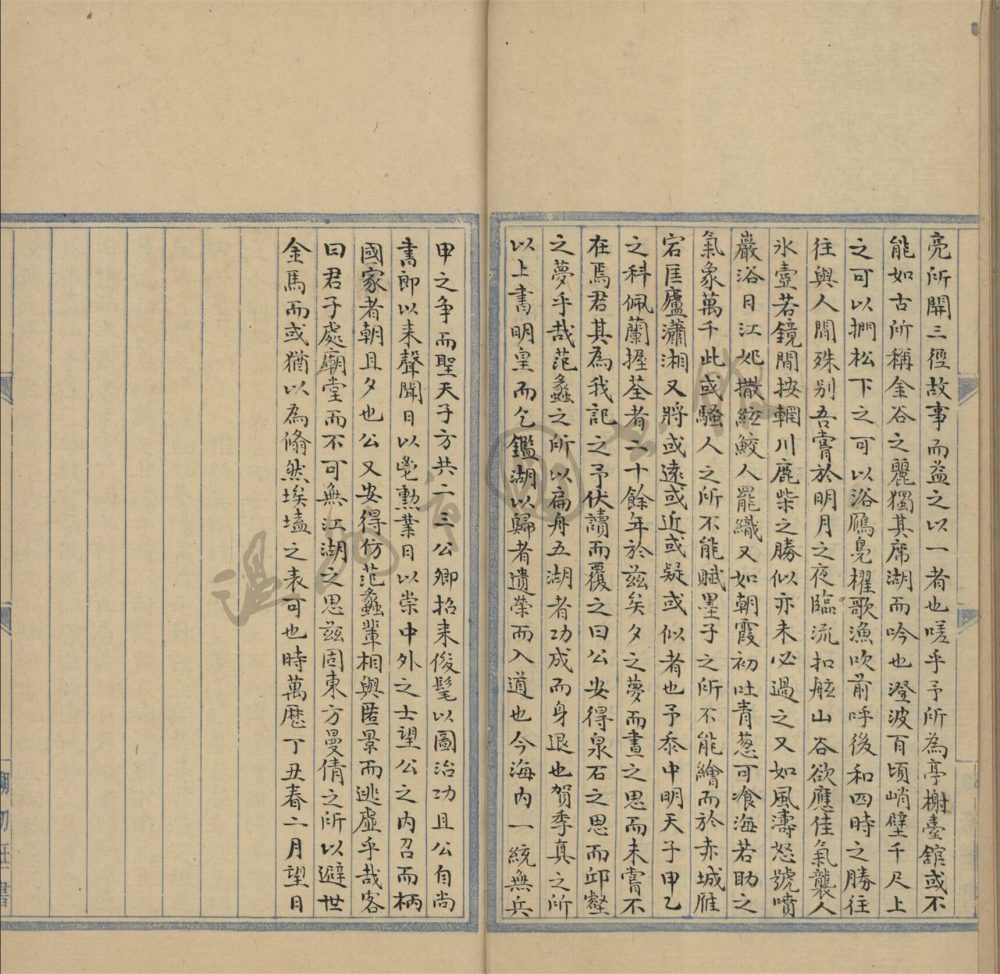 亮所開三徑故事而益之以一者也嗟乎予所為亭榭臺館或不
能如古所稱金谷之麗獨其席湖而吟也澄波百頃峭壁千尺上
之可以捫松下之可以浴鴈鳧櫂歌漁吹前呼後和四時之勝往
往與人間殊別吾嘗於明月之夜臨流扣舷山谷欲應佳氣襲人
氷壺若鏡間按輞川鹿柴之勝似亦未必過之又如風濤怒號噴
巖浴日江妃撒紘鮫人罷織又如朝霞初吐青葱可飡海若助之
氣象萬千此或騷人之所不能賦墨子之所不能繪而於赤城雁
宕匡廬瀟湘又將或遠或近或疑或似者也予忝中明天子甲乙
之科佩蘭握荃者二十餘年於茲矣夕之夢而晝之思而未嘗不
在焉君其為我記之予伏讀而覆之曰公安得泉石之思而邱壑
之夢乎哉范蠡之所以扁舟五湖者功成而身退也賀季真之所
以上書明皇而乞鑑湖以歸者遺榮而入道也今海內一統無兵
甲之爭而聖天子方共二三公卿招來俊髦以圖治功且公自尚
書郎以來聲聞日以亳勲業日以崇中外之士望公之內召而柄
國家者朝且夕也公又安得仿范蠡輩相與匿景而逃虛乎哉客
曰君子處廟堂而不可無江湖之思茲固東方曼倩之所以避世
金馬而或猶以為翛然埃壒之表可也時萬歷丁丑春二月望日